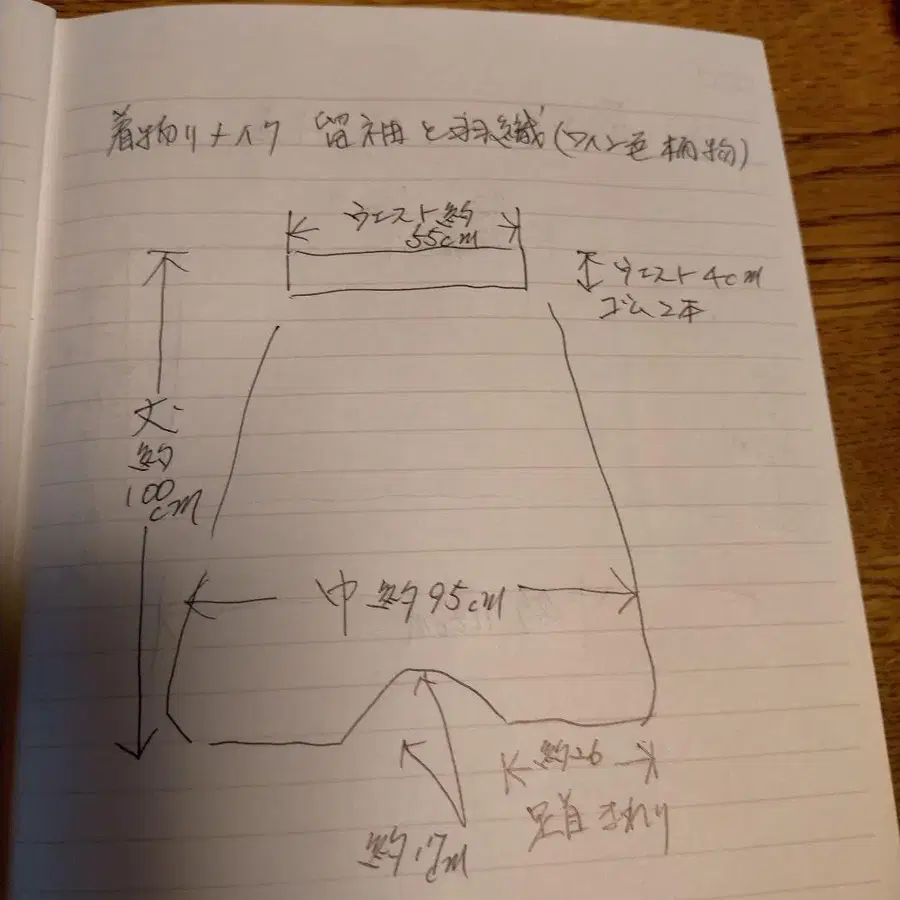 着物リメイク 留袖と羽織(ワイン色柄物)
ウエスト約
55cm
ウエスト4cm
ゴム2本
丈
約
100
cm
巾 約95cm
約26
足首まわり
約17cm